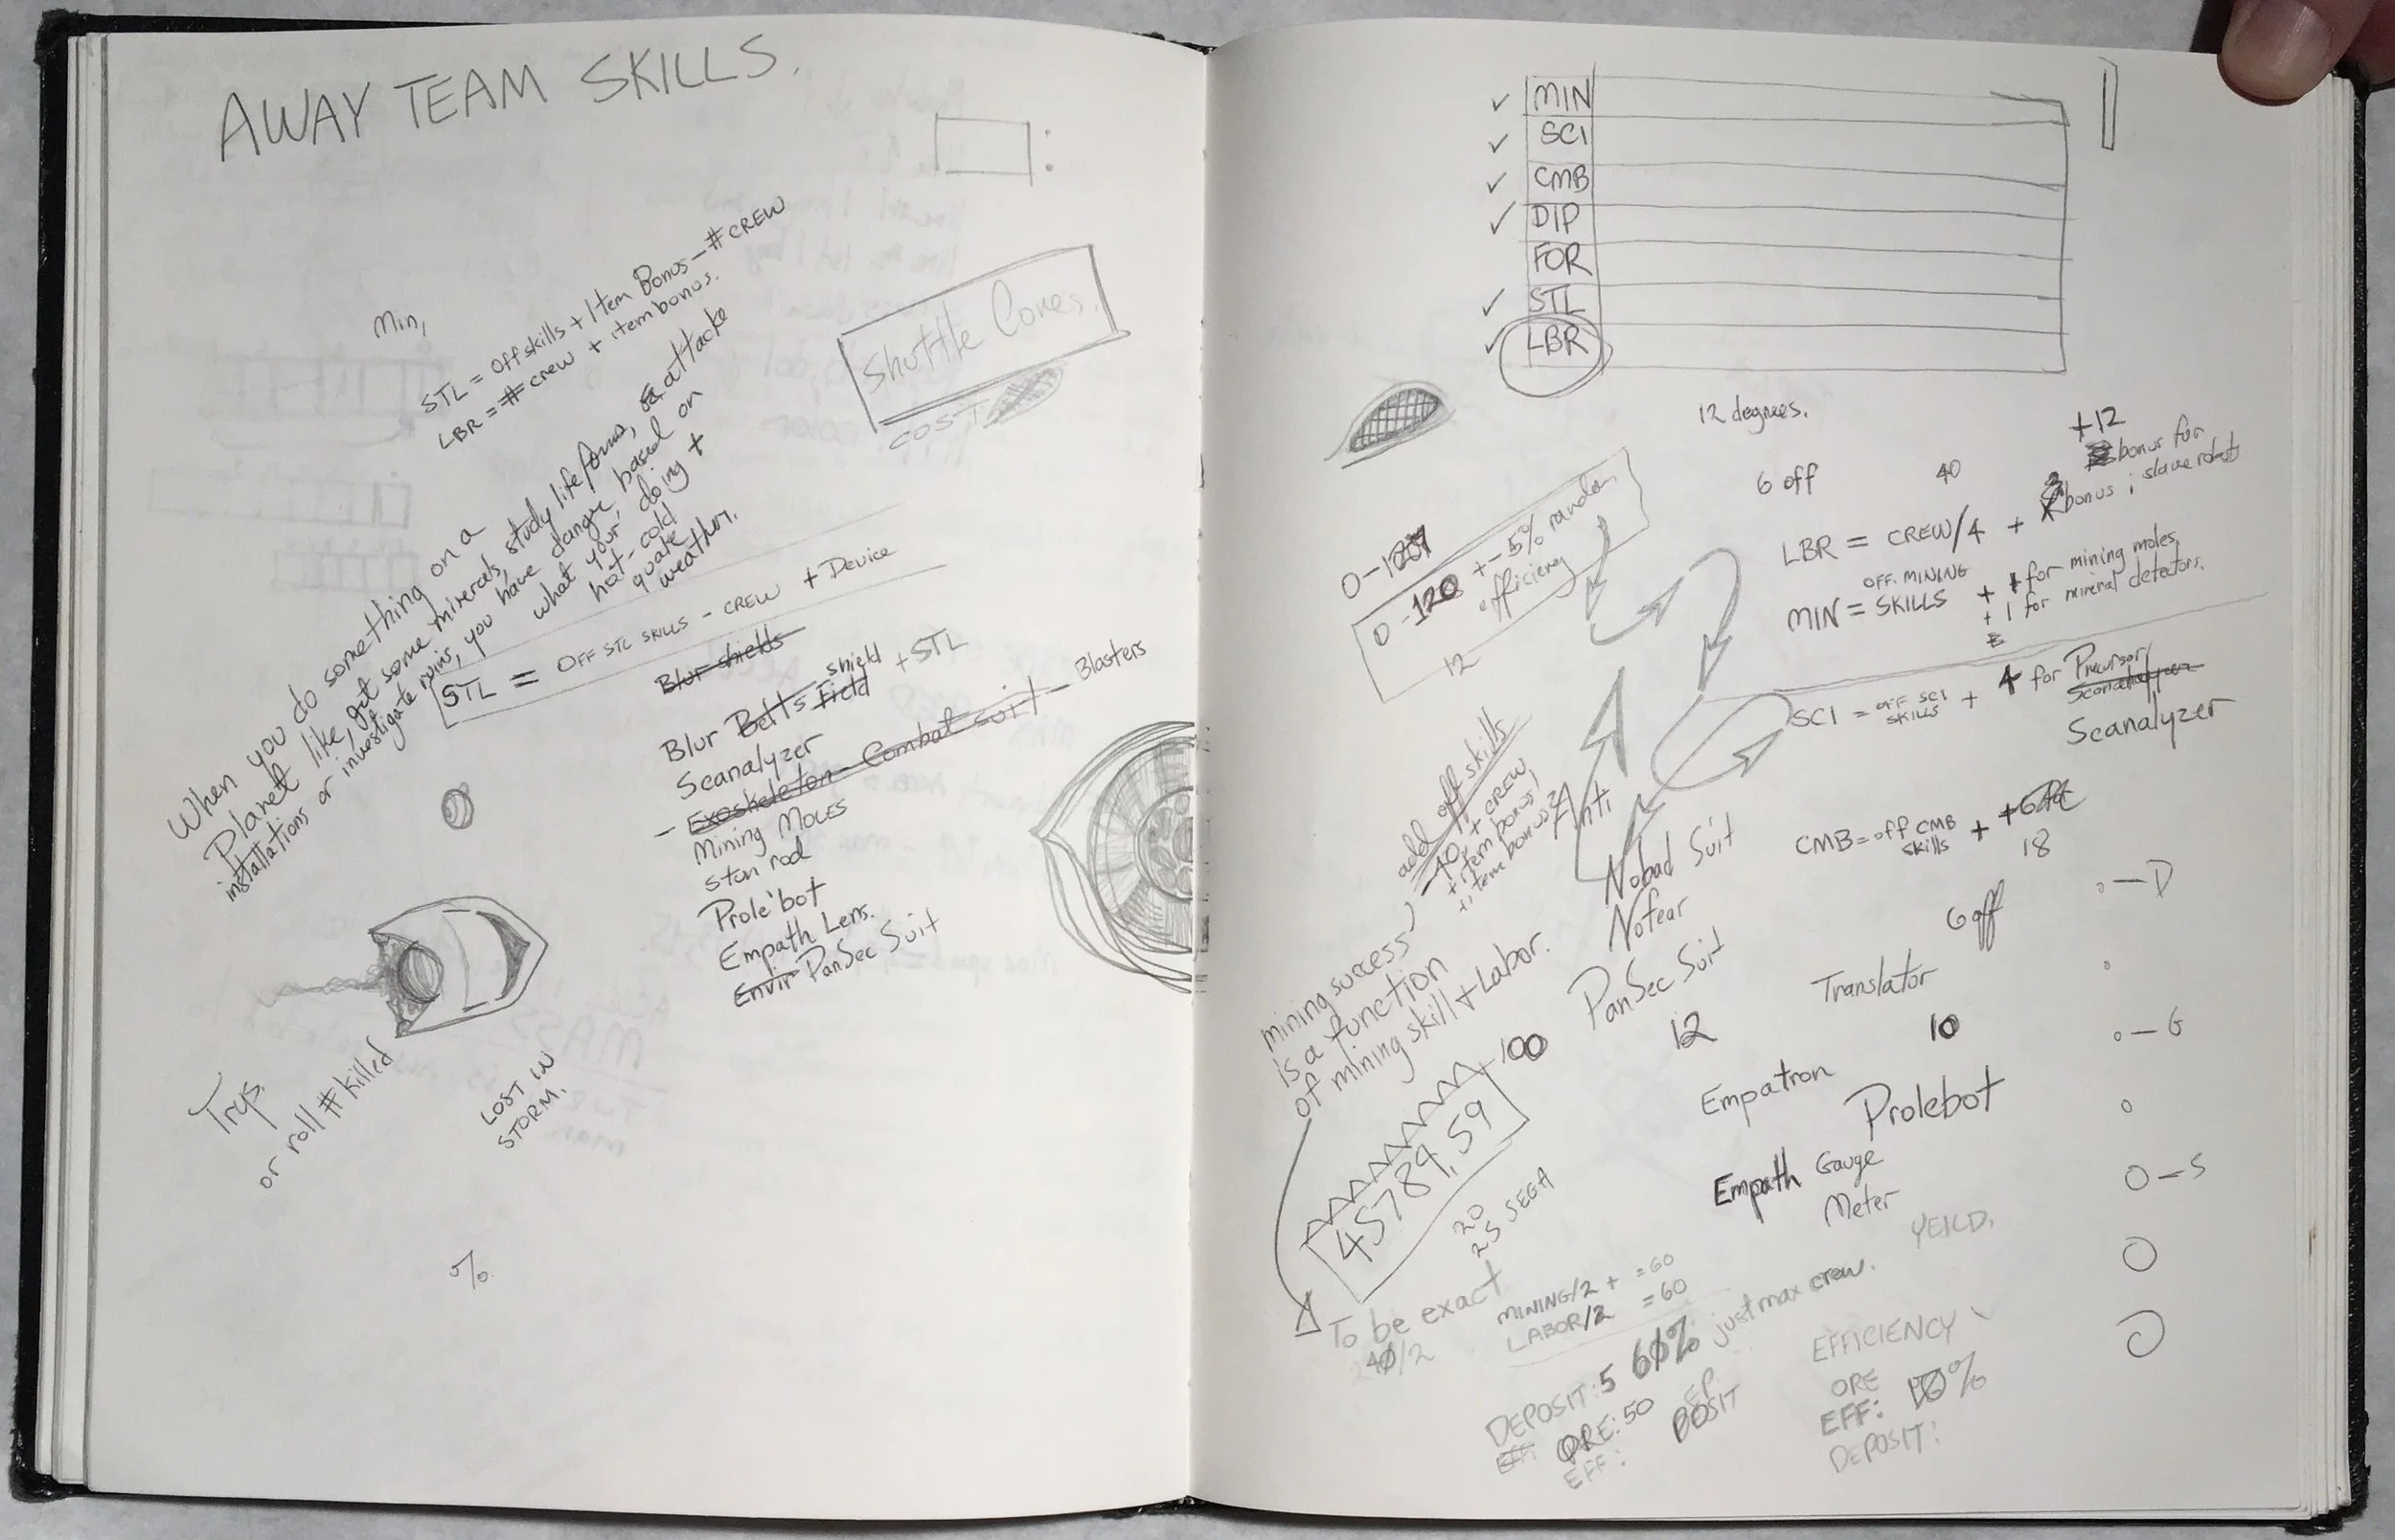 AWAY TEAM SKILLS.
Min,
STL = Off skills + Item Bonus - # CREW
LBR = # crew + item bonus.
Shuttle Cones.
COST
When you do something on a
Planet like, get some minerals, study life forms, attack
installations or investigate ruins, you have danger based on
what your doing +
hot-cold
quake
weather.
STL = OFF STL SKILLS - CREW + Device
Blur shields
Blur Belts shield Field + STL
Scanalyzer
- Exoskeleton - Combat suit - Blasters
Mining MOLES
Stun rod
Prole'bot
Empath Lens.
Envir PanSec Suit
Trys.
or roll # killed
LOST IN
STORM.
%
MIN
SCI
CMB
DIP
FOR
STL
LBR
12 degrees.
+12
6 off
40
bonus for
bonus ; slave robots
LBR = CREW/4 +
OFF. MINING
MIN = SKILLS + 1 for mining moles,
+ 1 for mineral detectors.
0-120
0-120 +-5% random
efficiency
12
SCI = OFF SCI SKILLS + 4 for Precursor
Scanalyzer
Scanalyzer
CMB = off CMB skills +
18
add off skills
40 + CREW
+ item bonus
+ item bonus 2
Anti
Nobad Suit
Nofear
PanSec Suit
12
6 off
Translator
10
mining success
is a function
of mining skill + Labor.
100
45789.59
20
25 SEGA
Empatron
Prolebot
Empath Gauge
Meter
YEILD.
O-D
O-G
O-S
To be exact
40/2
MINING/2 + = 60
LABOR/2 = 60
just max crew.
DEPOSIT: 5 60%
ORE: 50
EFF:
DEPOSIT
EFFICIENCY
ORE
EFF: 10%
DEPOSIT: